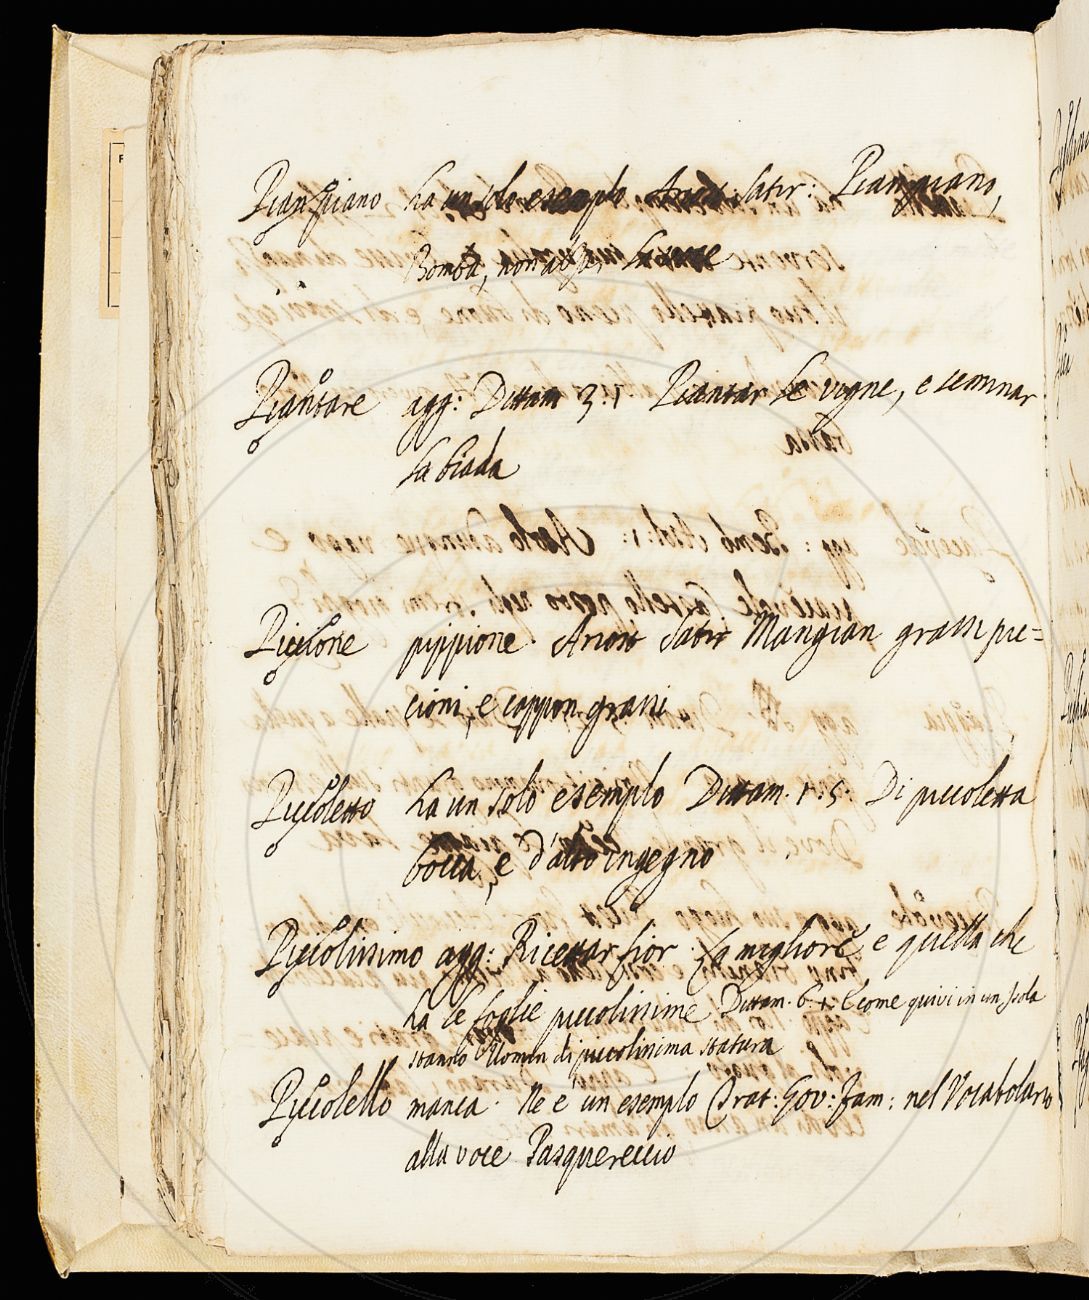 Pian piano ha un solo esemplo Ariost. Satir: Pian piano,
Bomba, non
Piantare agg: Dittam 3. 1 Piantar le vigne, e seminar
la biada
Piccione pippione. Ariost Satir Mangian grassi pic=
cioni, e cappon grassi
Piccoletto ha un solo esemplo Dittam. 1. 5. Di piccoletta
bocca, e d'alto ingegno
Piccolissimo agg: Ricettar fior: La migliore e quella che
ha le foglie piccolissime Dittam. 6. 1. E come quivi in un Isola
stanno Uomin di piccolissima statura
Piccolello manca. Ne è un esemplo Trat: Gov: Fam: nel Vocabolario
alla voce Pasquereccio